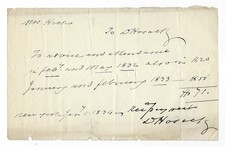 To D Hosack
To advice and attendance
in feby and May 1832 also in
January and february 1833
$ 71.
New york Jany 1. 1834
D Hosack